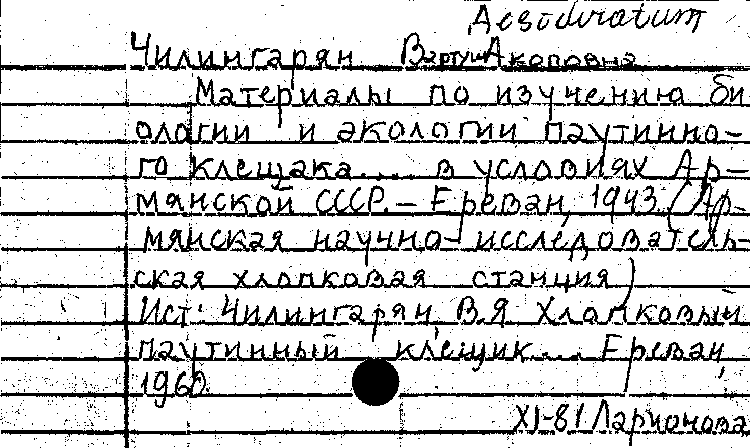 Desideratum
Чилингарян Вартуш Акоповна
Материалы по изучению би
ологии и экологии паутинно-
го клещака.... в условиях Ар-
мянской СССР. – Ереван, 1943. (Ар-
мянская научно-исследователь-
ская хлопковая станция)
Ист: Чилингарян, В.Я. Хлопковый
паутинный клещик.... Ереван,
1960.
XI-81 Ларионова